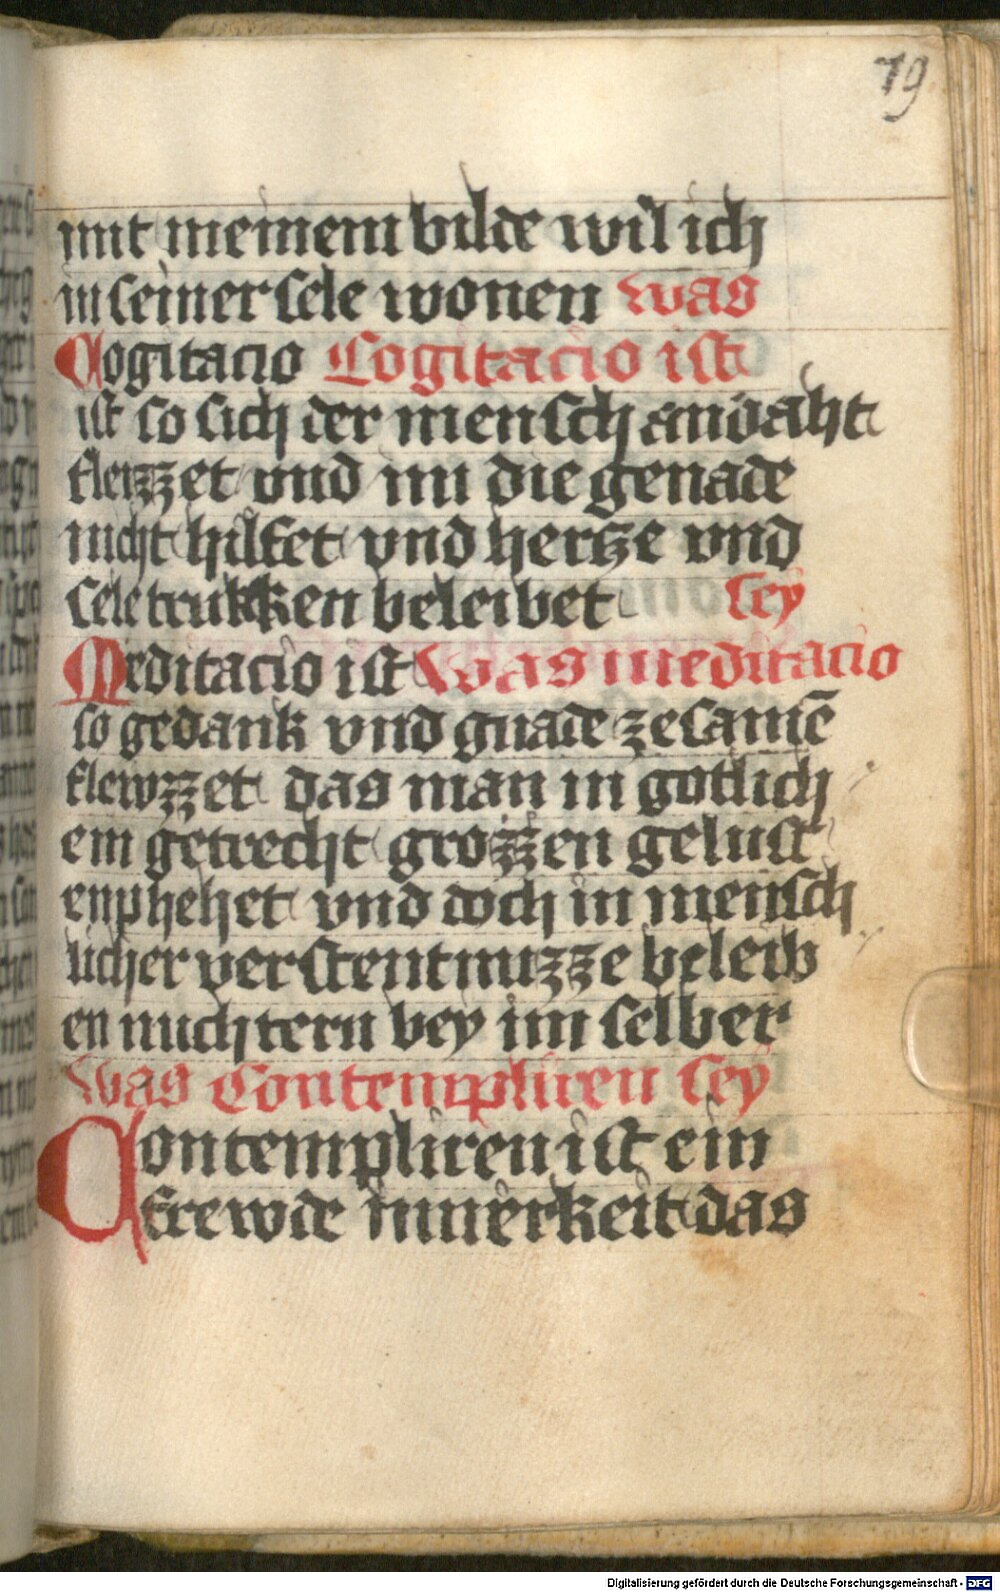 79
mit meinem bilde wil ich
in seiner sele wonen was
Cogitacio Cogitacio ist
ist so sich der mensch andaht
fleizzet vnd im die genade
nicht hilfet vnd hertze vnd
sele trukken beleibet sey
Meditacio ist was meditacio
so gedank vnd gnade zesamē
flewzzet das man in gotlich
em getrecht grozzen gelust
enphehet vnd doch in mensch
licher verstentnuzze beleib
en nuchtern bey im selber
was Contempliren sey
Contempliren ist ein
frewde innerkeit das
Digitalisierung gefördert durch die Deutsche Forschungsgemeinschaft - DFG